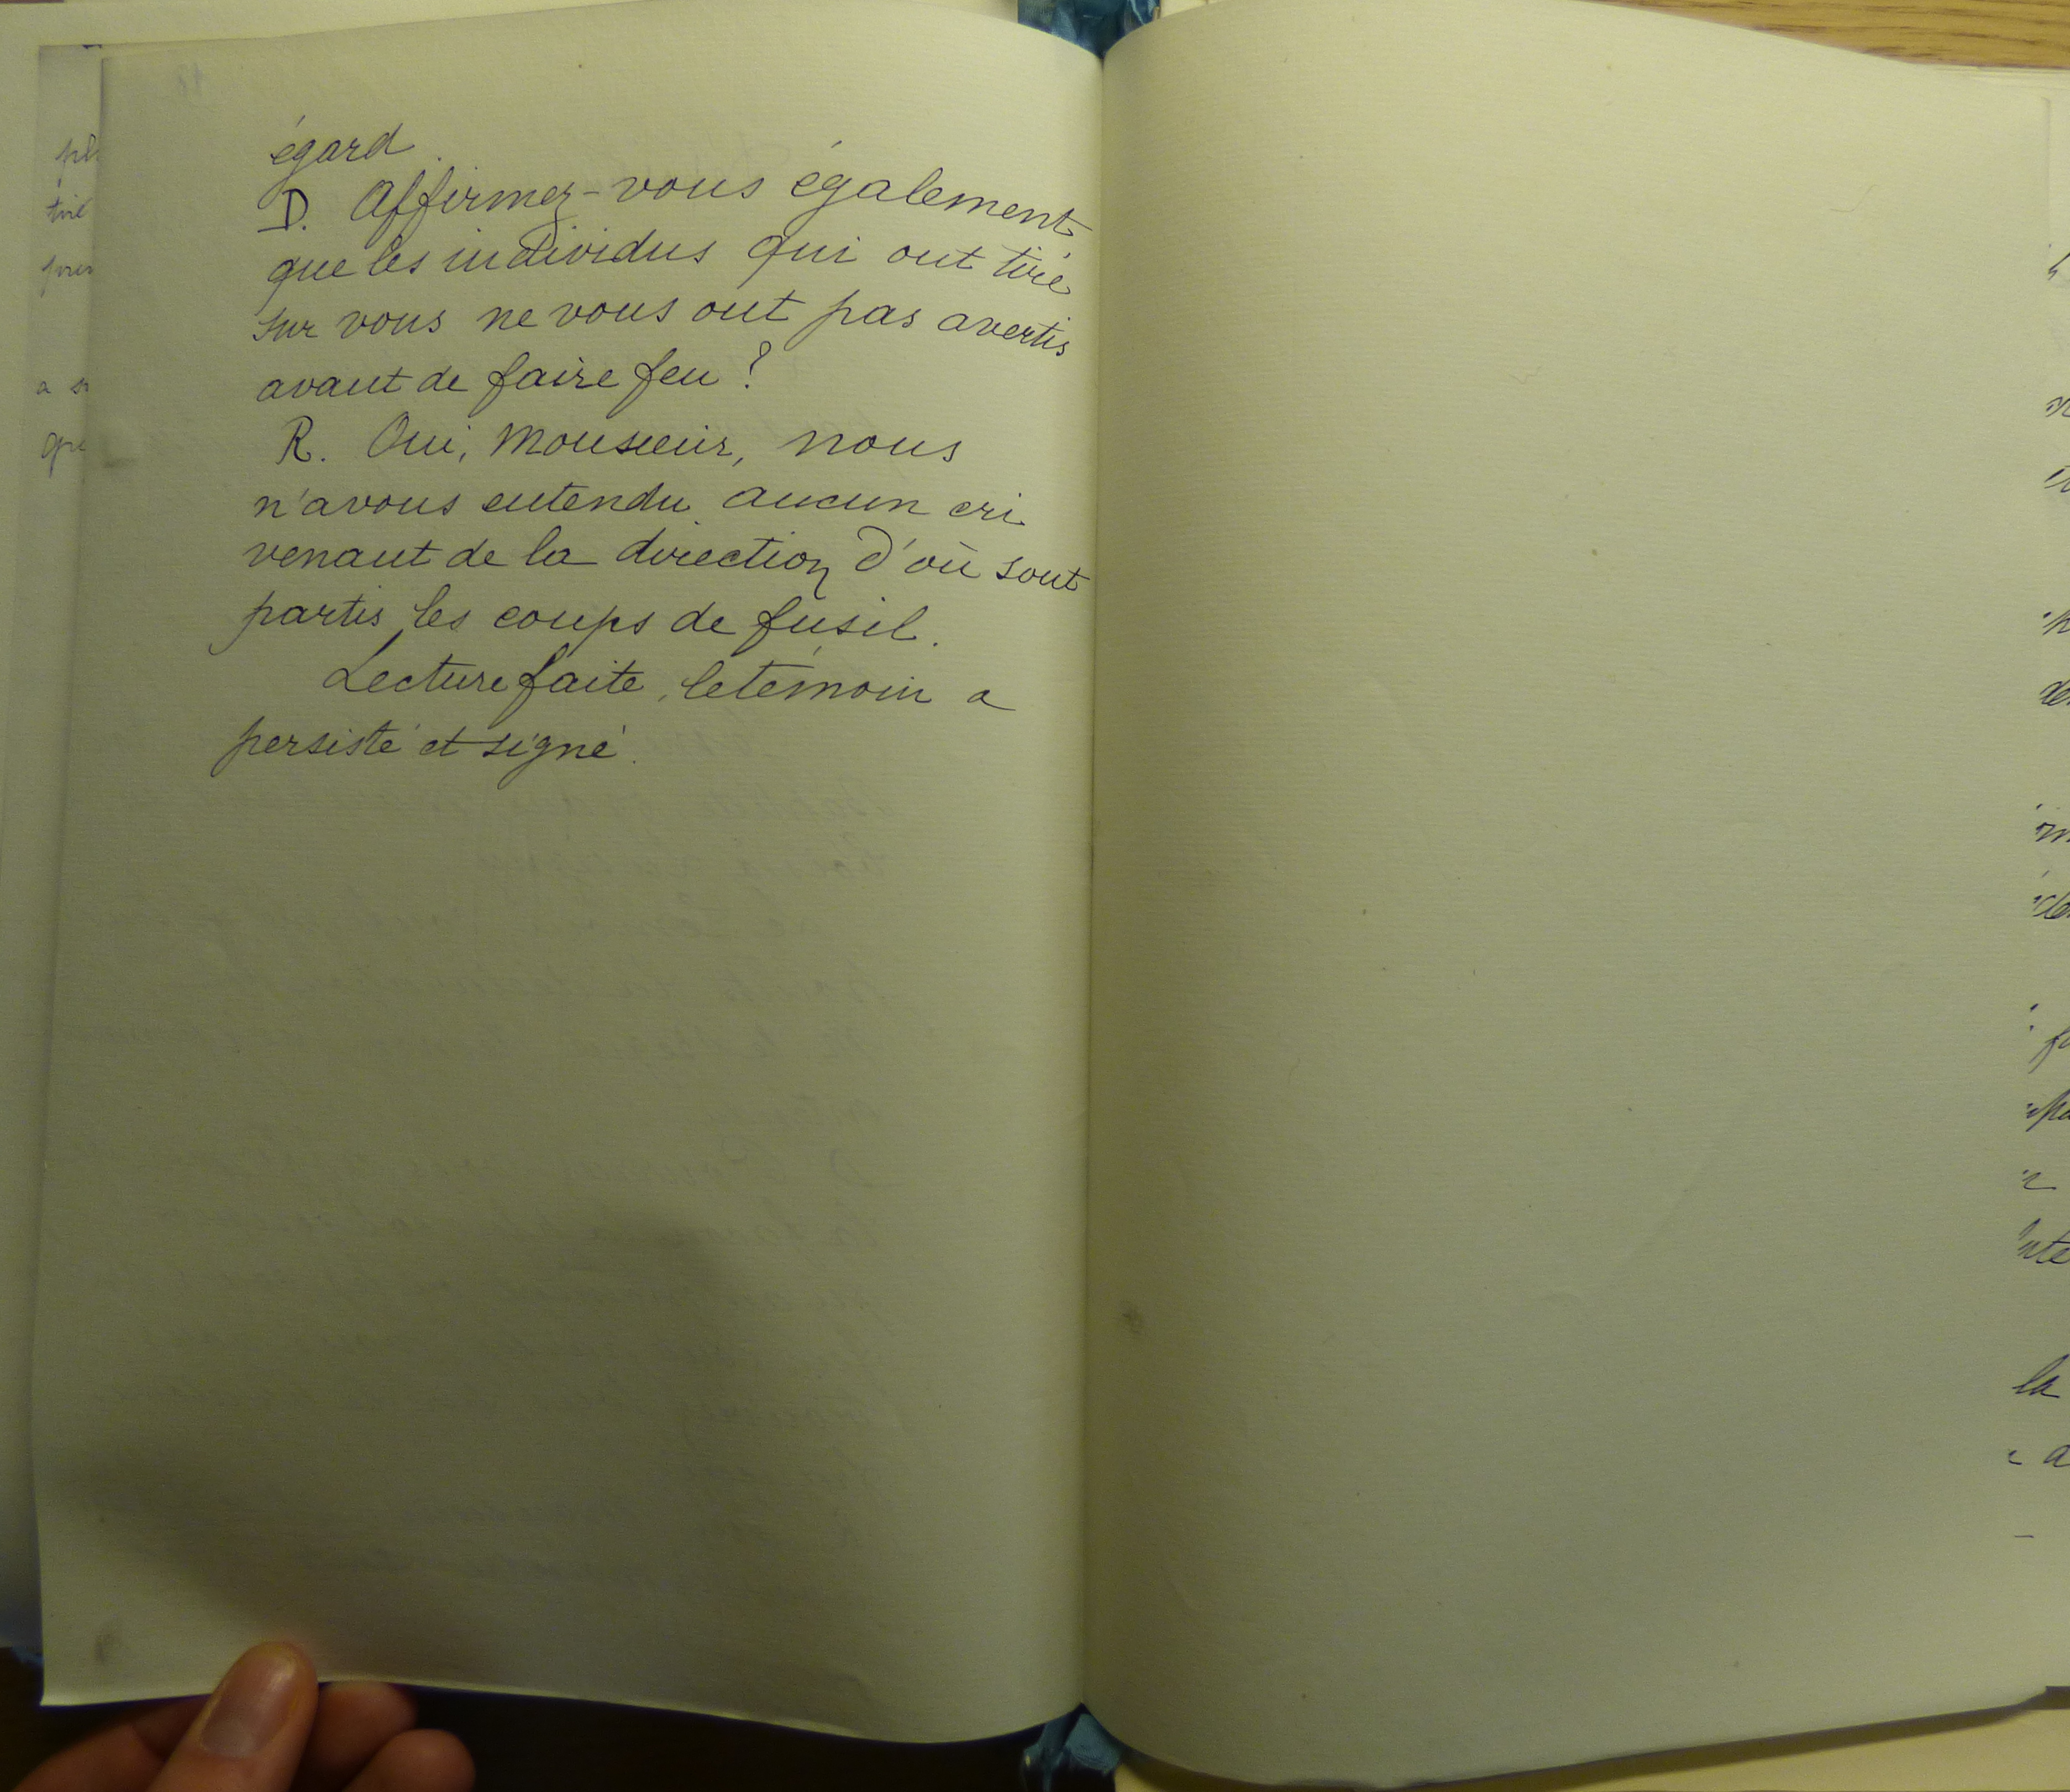 égard.
D. Affirmez-vous également
que les individus qui ont tiré
sur vous ne vous ont pas avertis
avant de faire feu ?
R. Oui, Monsieur, nous
n'avons entendu aucun cri
venant de la direction d'où sont
partis les coups de fusil.
Lecture faite, le témoin a
persisté et signé.
la